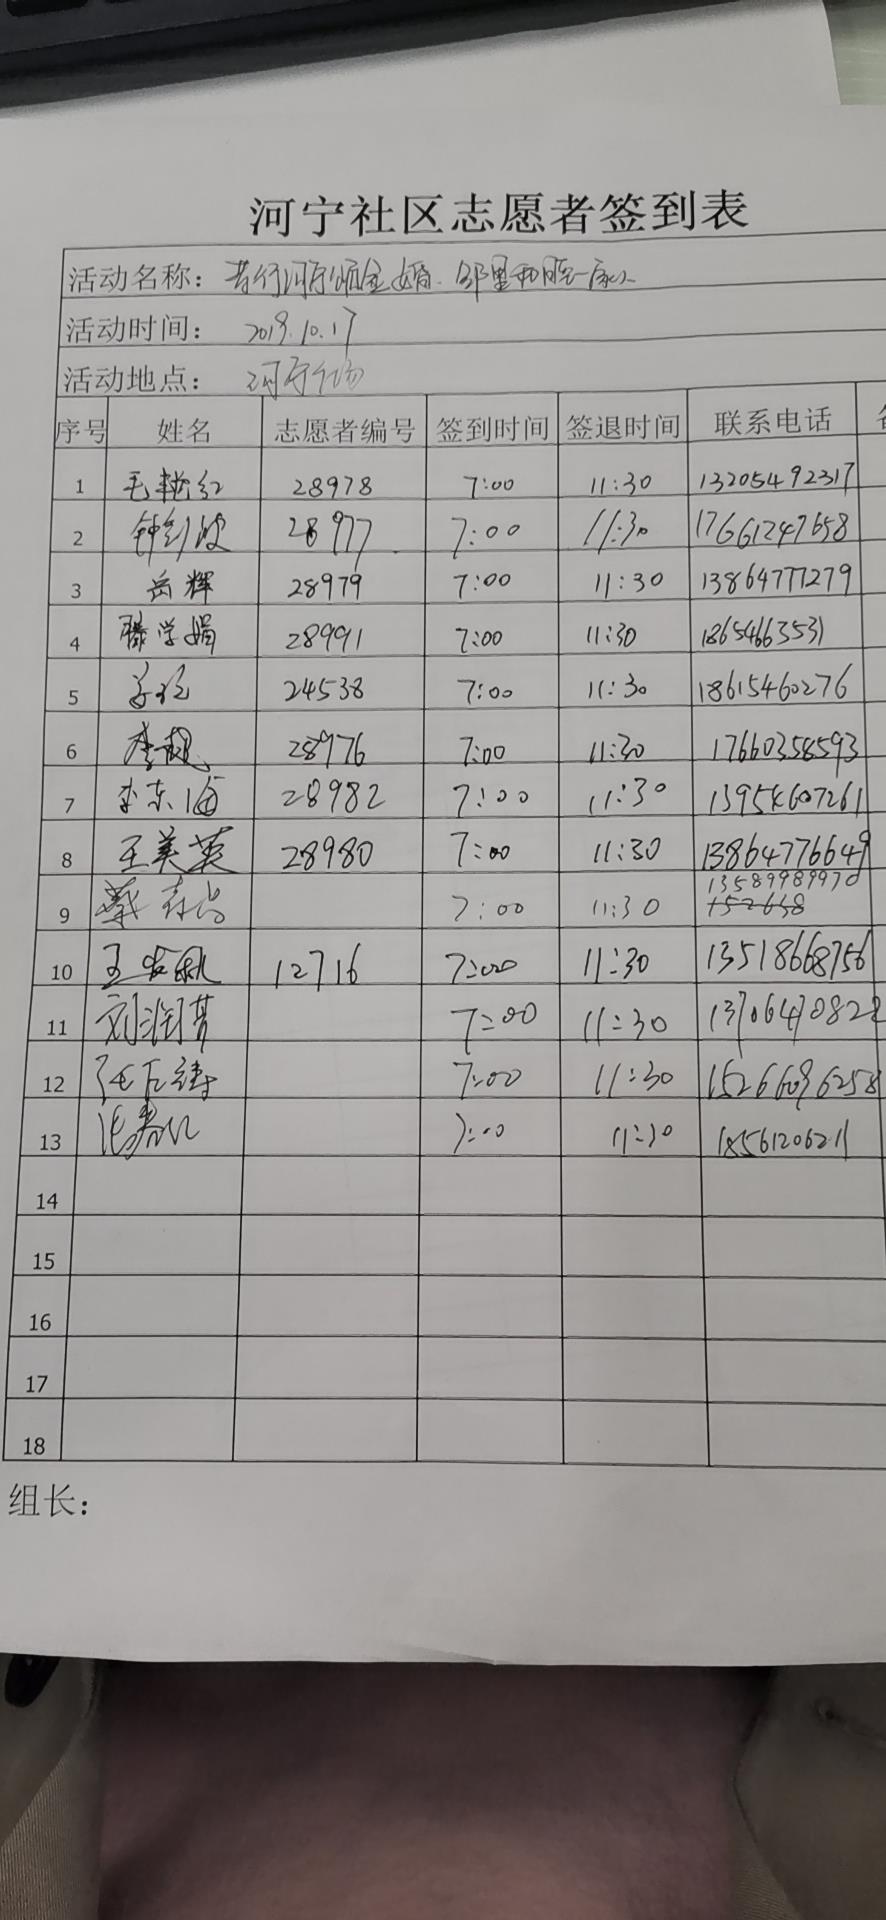 河宁社区志愿者签到表
活动名称：善行河宁颂金婚.邻里和睦一家人
活动时间：2019.10.17
活动地点：河宁广场
序号 姓名 志愿者编号 签到时间 签退时间 联系电话
1 毛艳红 28978 7:00 11:30 13205492317
2 钟剑波 28977 7:00 11:30 17661247658
3 岳辉 28979 7:00 11:30 13864777279
4 滕学娟 28991 7:00 11:30 18654663531
5 24538 7:00 11:30 18615460276
6 李靓 28976 7:00 11:30 17660358593
7 李东海 28982 7:00 11:30 13954607261
8 王美英 28980 7:00 11:30 13864776649
9 7:00 11:30 13589989970
10 王 12716 7:00 11:30 13518668756
11 刘润芳 7:00 11:30 1370647082
12 张 7:00 11:30 15266096258
13 7:00 11:30 18561206211
14
15
16
17
18
组长：